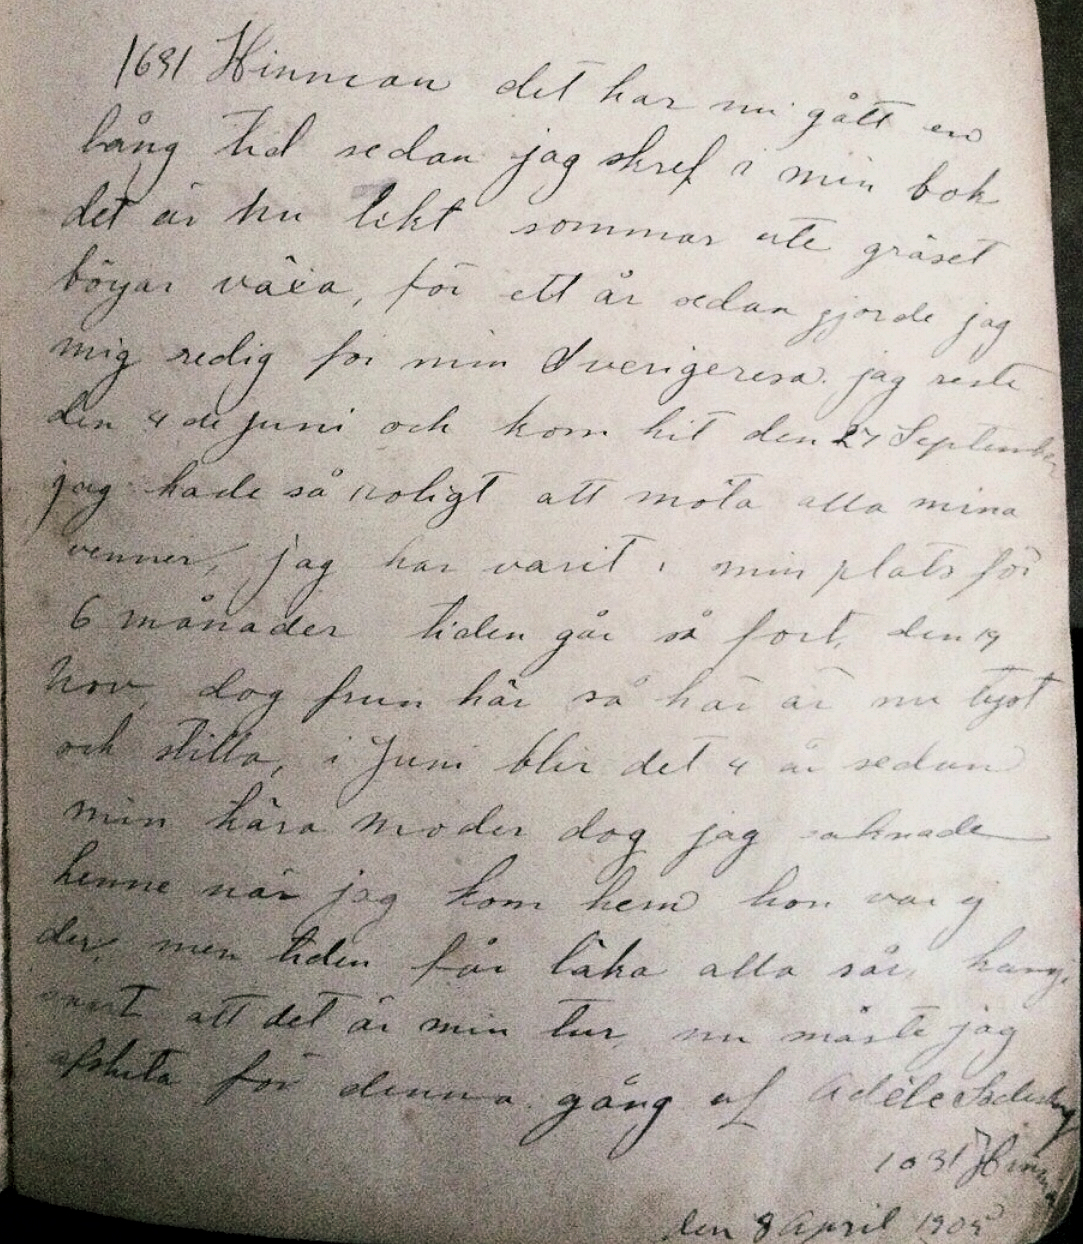 1631 Hinman det har nu gått en
lång tid sedan jag skref i min bok
det är nu likt sommar ute gräset
böyar växa, för ett år sedan gjorde jag
mig redig för min Sverigeresa. jag reste
den 4 de Juni och kom hit den 27 September
jag hade så roligt att möta alla mina
venner, jag har varit i min plats för
6 månader tiden går så fort, den 19
Nov, dog frun här så här är nu tyst
och stilla, i Juni blir det 4 år sedan
min kära moder dog jag saknade
henne när jag kom hem hon var ej
der, men tiden får läka alla sår, kansje
snart att det är min tur, nu måste jag
afsluta för denna gång af Adéle Söderberg
1031 Hinman
den 8 April 1905